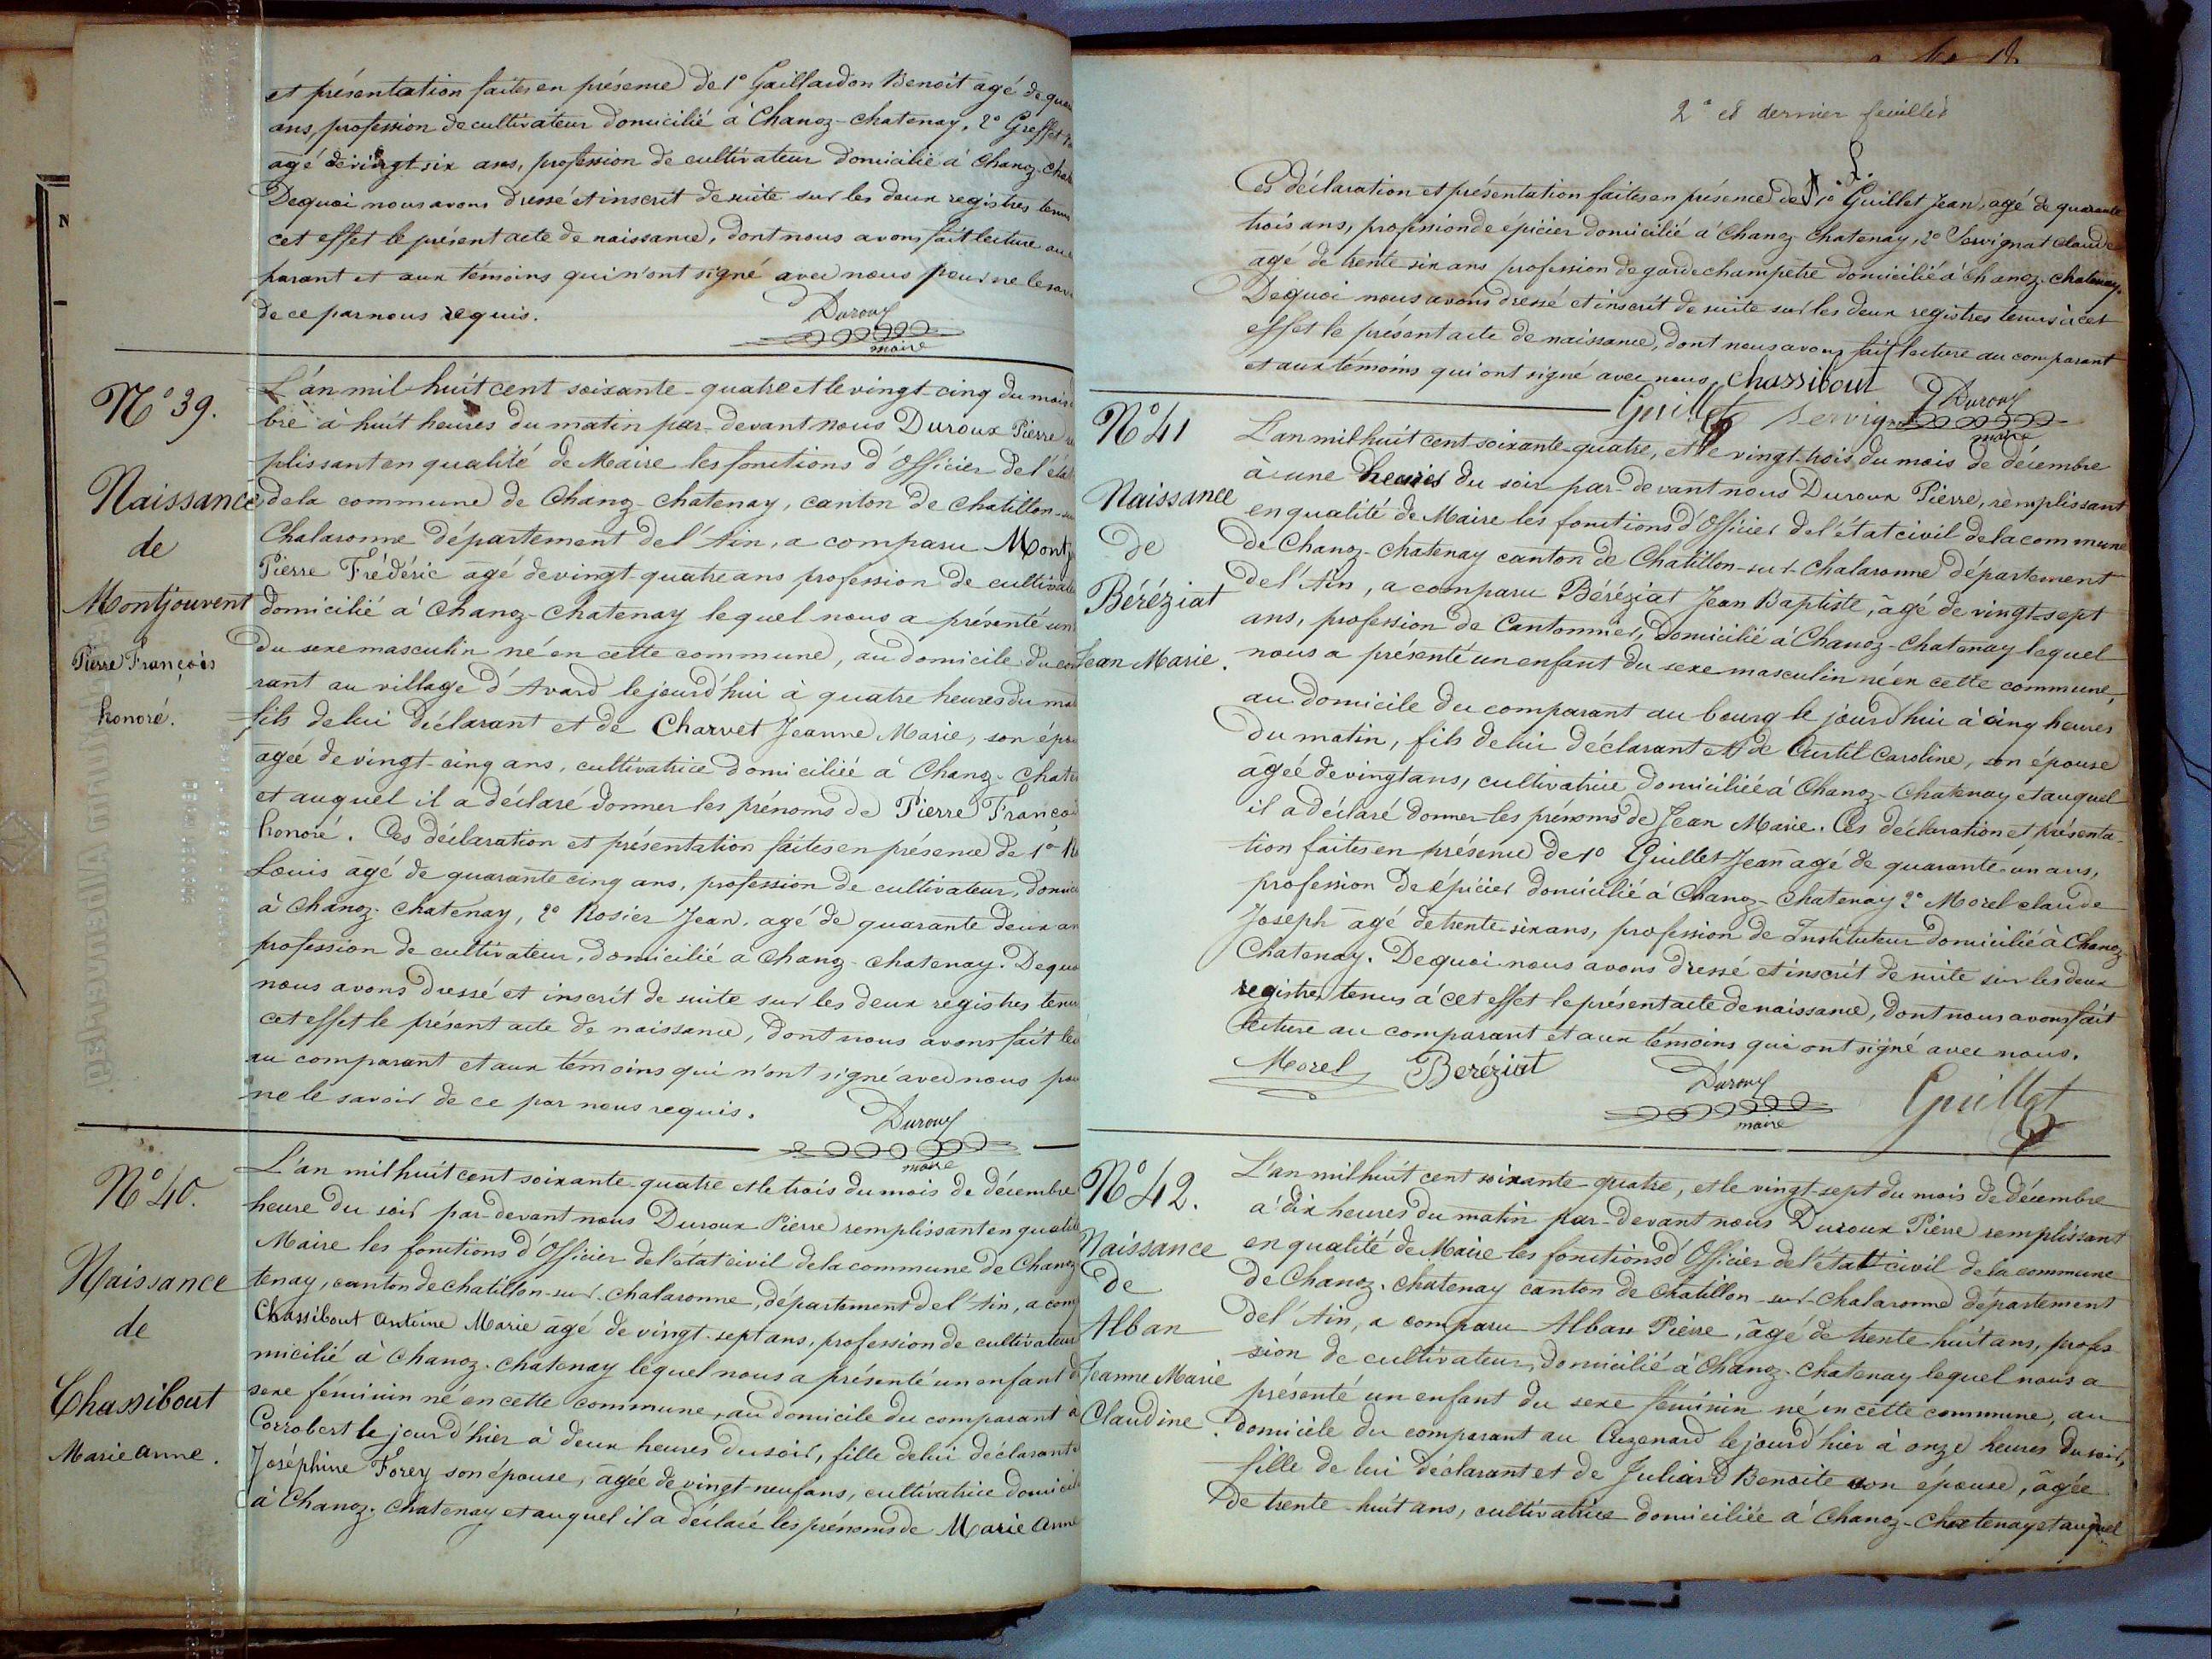 et présentation faites en présence de 1° Gaillardon Benoit agé de
ans, profession de cultivateur domicilié à Chanoz-Chatenay, 2° Greffet
agé de vingt six ans, profession de cultivateur domicilié à Chanoz-
De quoi nous avons dressé et inscrit de suite sur les deux registres tenus
cet effet le présent acte de naissance, dont nous avons fait lecture au
parant et aux témoins qui n'ont signé avec nous pour ne le
de ce par nous requis.
Duroux
maire
N° 39.
Naissance
de
Montjouvent
Pierre François
honoré.
L'an mil-huit cent soixante-quatre et le vingt-cinq du mois
bre à huit heures du matin par-devant nous Duroux Pierre
plissant en qualité de Maire les fonctions d'Officier de l'état
de la commune de Chanoz-Chatenay, canton de Chatillon-
Chalaronne département de l'Ain, a comparu Montj
Pierre Frédéric agé de vingt-quatre ans profession de cultivate
domicilié à Chanoz-Chatenay lequel nous a présenté un
du sexe masculin né en cette commune, au domicile du
rant au village d'Avard le jourd'hui à quatre heures du
fils de lui déclarant et de Charvet Jeanne Marie, son
agée de vingt-cinq ans, cultivatrice domiciliée à Chanoz-Chate
et auquel il a déclaré donner les prénoms de Pierre Franço
honoré. Ces déclaration et présentation faites en présence de 1°
Louis agé de quarante cinq ans, profession de cultivateur,
à Chanoz-Chatenay, 2° Rosier Jean, agé de quarante deux
profession de cultivateur, domicilié à Chanoz-Chatenay. De
nous avons dressé et inscrit de suite sur les deux registres
cet effet le présent acte de naissance, dont nous avons fait
au comparant et aux témoins qui n'ont signé avec nous
ne le savoir de ce par nous requis.
Duroux
maire
N° 40.
Naissance
de
Chassibout
Marie Anne.
L'an mil huit cent soixante-quatre et le trois du mois de décembre
heure du soir par-devant nous Duroux Pierre remplissant en
Maire les fonctions d'Officier de l'état civil de la commune de Chanoz
tenay, canton de Chatillon-sur-Chalaronne, département de l'Ain, a
Chassibout Antoine Marie agé de vingt-sept ans, profession de cultivateur
micilié à Chanoz-Chatenay lequel nous a présenté un enfant
sexe féminin né en cette commune, au domicile du comparant à
Corrobert le jour d'hier à deux heures du soir, fille de lui déclarant
Joséphine Forey son épouse, agée de vingt-neuf ans, cultivatrice
à Chanoz-Chatenay et auquel il a déclaré les prénoms de Marie Anne
2° et dernier feuillet
Ces déclaration et présentation faites en présence de 1° Guillet Jean, agé de quarante
trois ans, profession de épicier domicilié à Chanoz Chatenay, 2° Servignat Claude
agé de trente six ans profession de garde champêtre domicilié à Chanoz-Chatenay.
De quoi nous avons dressé et inscrit de suite sur les deux registres tenus à cet
effet le présent acte de naissance, dont nous avons fait lecture au comparant
et aux témoins qui ont signé avec nous. Chassibout
Guillet Duroux
maire
N° 41
Naissance
de
Béréziat
Jean Marie.
L'an mil huit cent soixante-quatre, et le vingt-trois du mois de décembre
à une heures du soir par-devant nous Duroux Pierre, remplissant
en qualité de Maire les fonctions d'Officier de l'état civil de la commune
de Chanoz-Chatenay canton de Chatillon-sur-Chalaronne département
de l'Ain, a comparu Béréziat Jean Baptiste, agé de vingt-sept
ans, profession de Cantonnier, domicilié à Chanoz-Chatenay lequel
nous a présenté un enfant du sexe masculin né en cette commune,
au domicile du comparant au bourg le jourd'hui à cinq heures
du matin, fils de lui déclarant et de Curtil Caroline, son épouse
agée de vingt ans, cultivatrice domiciliée à Chanoz-Chatenay et auquel
il a déclaré donner les prénoms de Jean Marie. Ces déclaration et présenta-
tion faites en présence de 1° Guillet Jean agé de quarante un ans,
profession de épicier domicilié à Chanoz-Chatenay 2° Morel Claude
Joseph agé de trente six ans, profession de Instituteur domicilié à Chanoz-
Chatenay. De quoi nous avons dressé et inscrit de suite sur les deux
registres tenus à cet effet le présent acte de naissance, dont nous avons fait
lecture au comparant et aux témoins qui ont signé avec nous.
Morel Beréziat Duroux Guillet
maire
N° 42.
Naissance
de
Alban
Jeanne Marie
Claudine.
L'an mil huit cent soixante-quatre, et le vingt-sept du mois de décembre
à dix heures du matin par-devant nous Duroux Pierre remplissant
en qualité de Maire les fonctions d'Officier de l'état civil de la commune
de Chanoz-Chatenay canton de Chatillon-sur-Chalaronne département
de l'Ain, a comparu Alban Pierre, agé de trente-huit ans, profes-
sion de cultivateur, domicilié à Chanoz-Chatenay lequel nous a
présenté un enfant du sexe féminin né en cette commune, au
domicile du comparant au Cuzenard le jour d'hier à onze heures du soir,
fille de lui déclarant et de Juliard Benoite son épouse, agée
de trente-huit ans, cultivatrice domiciliée à Chanoz-Chatenay et auquel